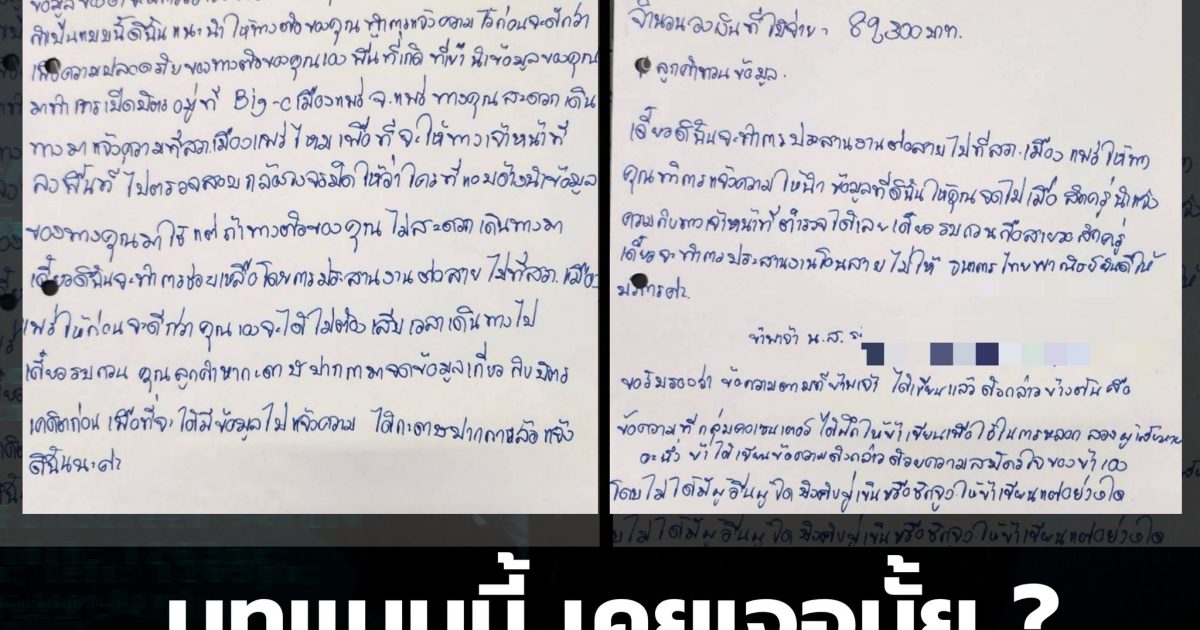 ถ้าเป็นแบบนี้ดิฉันแนะนำให้ทางตัวของคุณ ทำการแจ้งความไว้ก่อนจะดีกว่า
เพื่อความปลอดภัยของทางตัวของคุณเอง พื้นที่เกิด ที่เขานำข้อมูลของคุณ
มาทำการเปิดบัตรอยู่ที่ Big-c เมืองแพร่ จ.แพร่ ทางคุณสะดวกเดิน
ทางมาแจ้งความที่สภ.เมืองแพร่ไหม เพื่อที่จะให้ทางเจ้าหน้าที่
ลงพื้นที่ ไปตรวจสอบกล้องวงจรปิดให้ว่าใครที่แอบอ้างนำข้อมูล
ของทางคุณมาใช้ แต่ถ้าทางตัวของคุณไม่สะดวกเดินทางมา
เดี๋ยวดิฉันจะทำการช่วยเหลือโดยการประสานงานต่อสายไปที่สภ.เมือง
แพร่ให้ก่อนจะดีกว่า คุณเองจะได้ไม่ต้องเสียเวลาเดินทางไป
เดี๋ยวรบกวน คุณลูกค้าหากระดาษปากกามาจดข้อมูลเกี่ยวกับบัตร
เครดิตก่อน เพื่อที่จะได้มีข้อมูลไปแจ้งความ ได้กระดาษปากกาแล้วแจ้ง
ดิฉันนะค่ะ
จำนวนวงเงินที่ใช้จ่าย = 89,300 บาท.
ลูกค้าทวนข้อมูล.
เดี๋ยวดิฉันจะทำการประสานงานต่อสายไปที่สภ.เมืองแพร่ ให้ทาง
คุณทำการแจ้งความ ให้นำข้อมูลที่ดิฉันให้คุณจดไปเมื่อสักครู่ นำแจ้ง
ความกับทางเจ้าหน้าที่ตำรวจได้เลย เดี๋ยวรบกวนถือสายรอสักครู่
เดี๋ยวจะทำการประสานงานโอนสายไปให้ ธนาคารไทยพาณิชย์ยินดีให้
บริการค่ะ.
ข้าพเจ้า น.ส.
ขอรับรองว่า ข้อความตามที่ข้าพเจ้า ได้เขียนแล้ว ดังกล่าวข้างต้น คือ
ข้อความที่กลุ่มคอเซนเตอร์ได้ฝึกให้ข้าเขียนเพื่อใช้ในการหลอกลวงผู้เสียหาย
อนึ่ง ข้าได้เขียนข้อความดังกล่าวด้วยความสมัครใจของข้าเอง
โดยไม่ได้มีผู้อื่นผู้ใดบังคับขู่เข็นหรือชักจูงให้ข้าเขียนแต่อย่างใด
บทแบบนี้ เคยเจอมั้ย ?